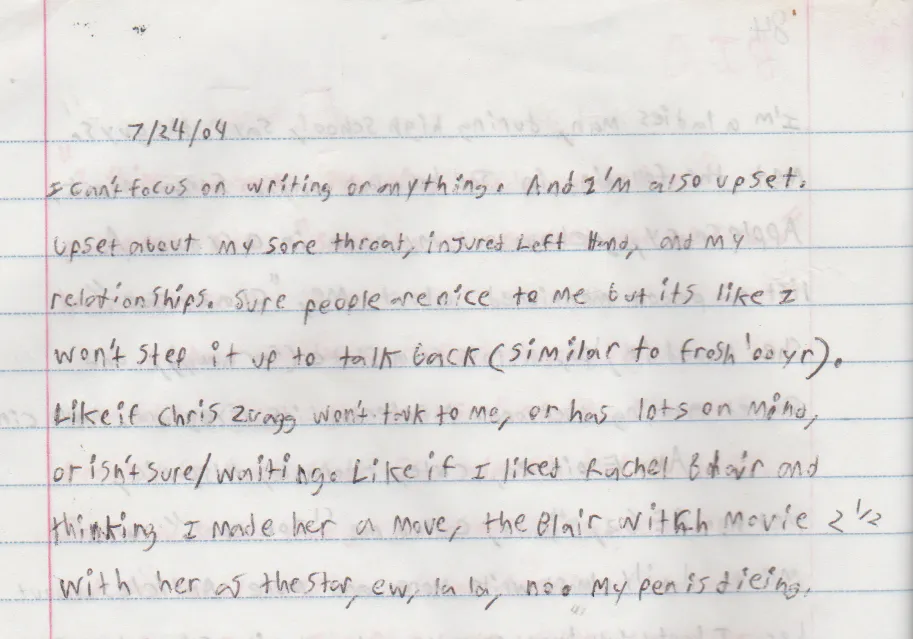 7/24/04
I can't focus on writing or anything. And I'm also upset.
Upset about my sore throat, injured Left Hand, and my
relationships. Sure people are nice to me but its like I
won't step it up to talk back (similar to frosh '00 yr).
Like if Chris Zwagg won't talk to me, or has lots on mind,
or isn't sure/waiting. Like if I liked Rachel Blair and
thinking I made her a move, the Blair Witch movie 2 1/2
with her as the star, ew, la la, no. My pen is dieing.